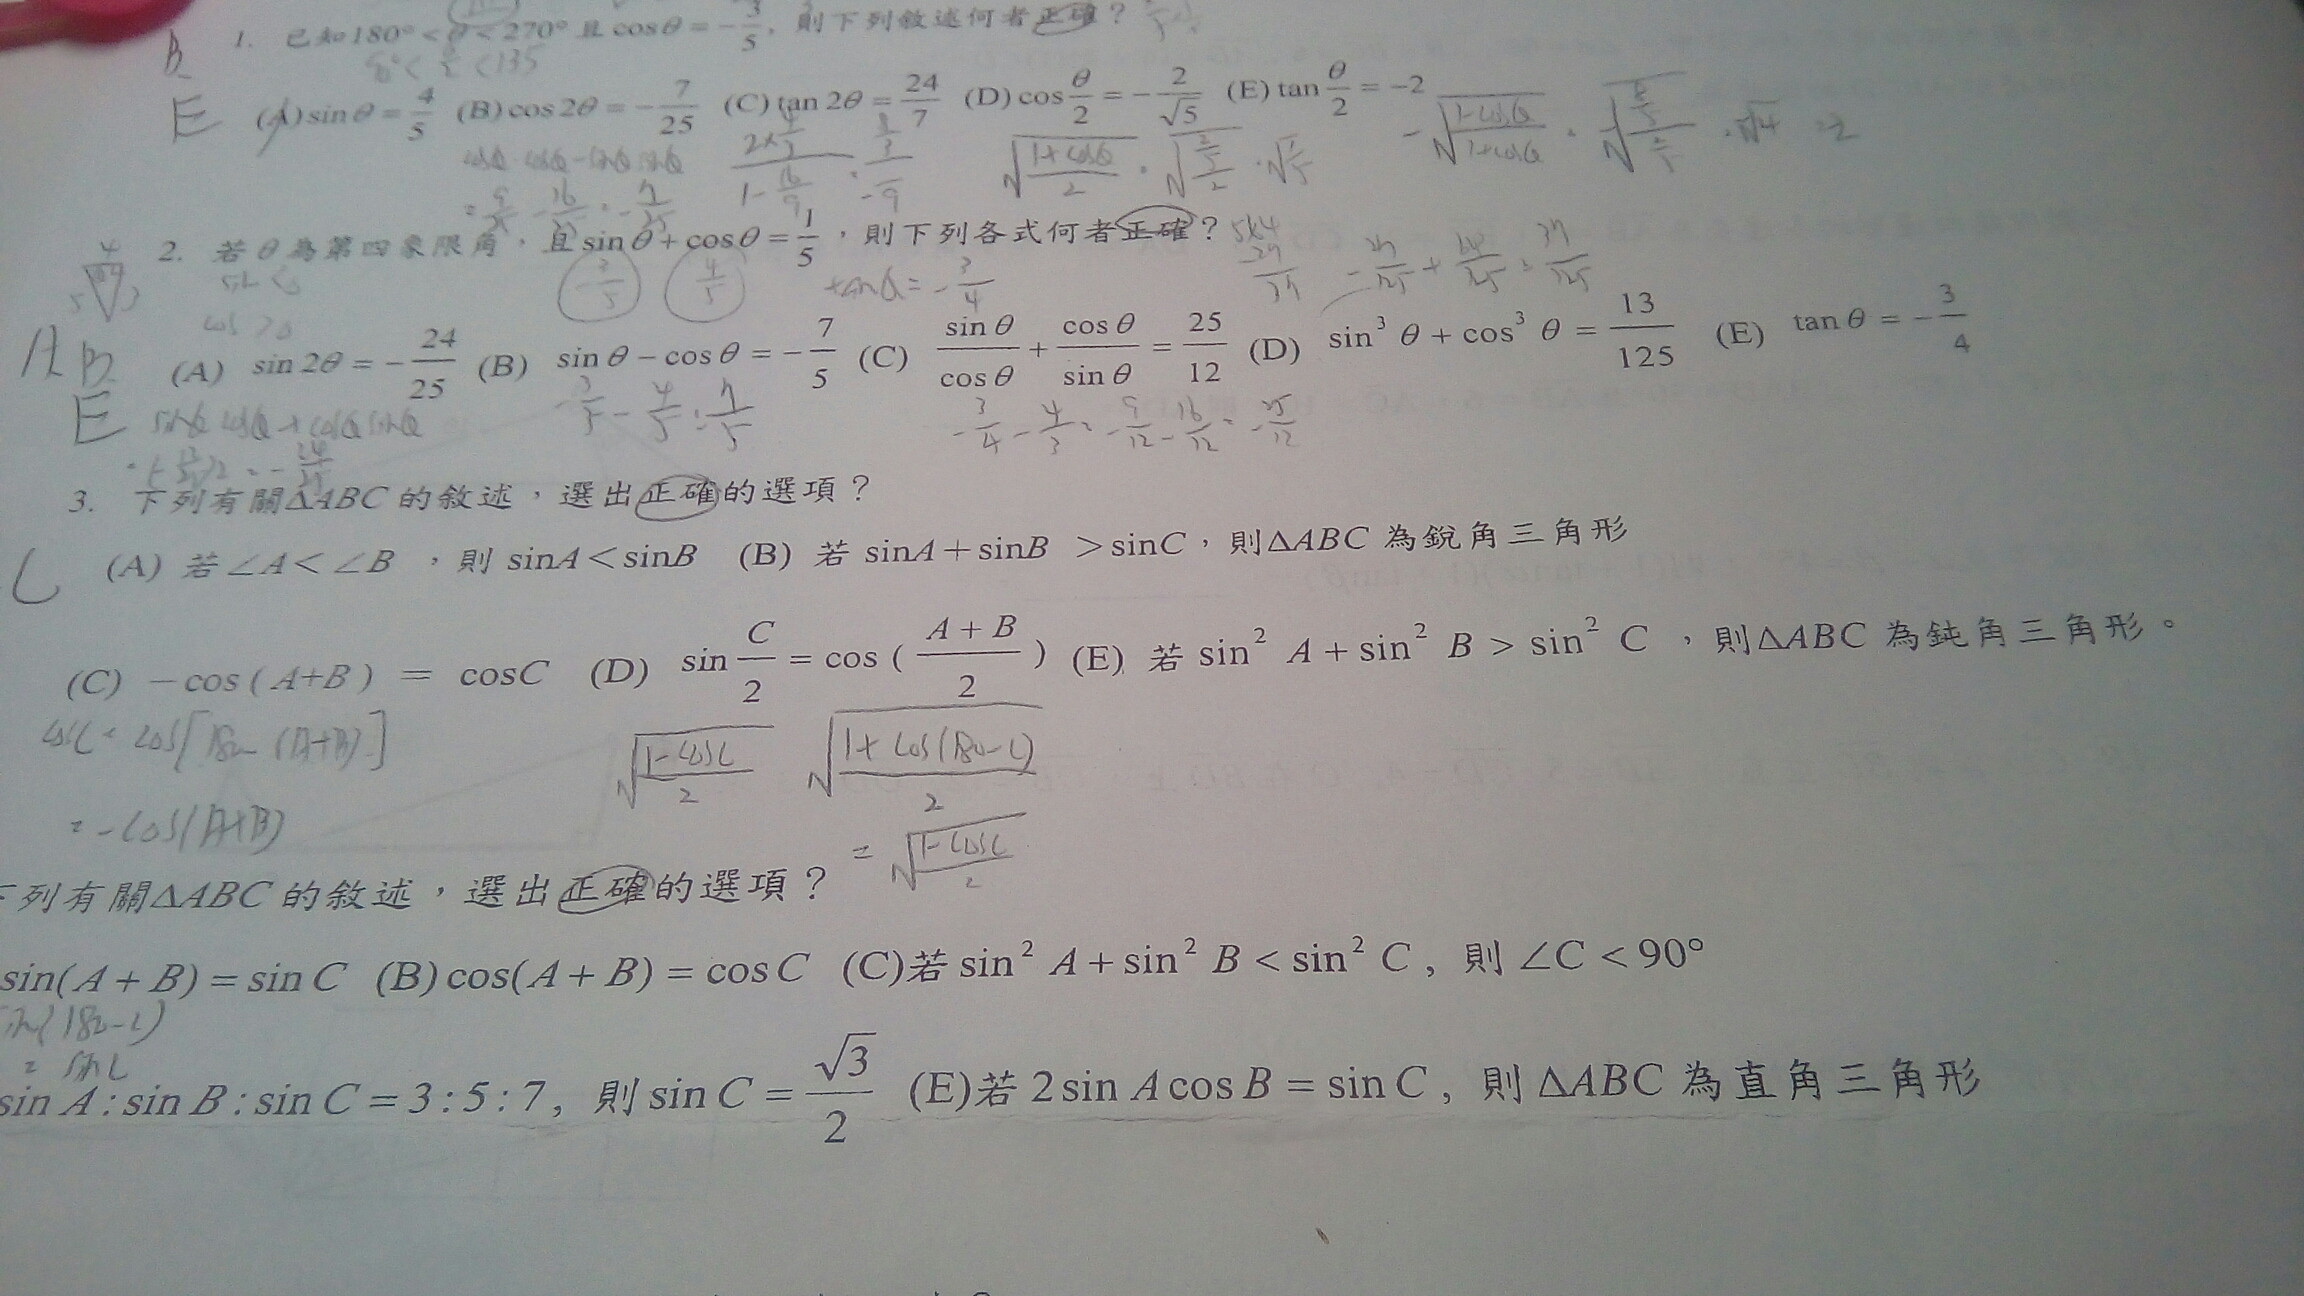 1. 已知180° < θ < 270° 且 cosθ = -3/5, 則下列敘述何者正確？
B
90° < θ/2 < 135
E (A) sinθ = 4/5 (B) cos2θ = -7/25 (C) tan 2θ = 24/7 (D) cos θ/2 = -2/√5 (E) tan θ/2 = -2
cosθ cosθ - sinθ sinθ
= 9/25 - 16/25 = -7/25
√((1+cosθ)/2) = √((2/5)/2) = √(1/5)
-√((1-cosθ)/(1+cosθ)) = √((8/5)/(2/5)) = √4 = 2
2. 若 θ 為第四象限角，且 sinθ + cosθ = 1/5，則下列各式何者正確？
-3/5 4/5
tanθ = -3/4
-27/125 + 64/125 = 37/125
cos > 0
A B (A) sin 2θ = -24/25 (B) sinθ - cosθ = -7/5 (C) sinθ/cosθ + cosθ/sinθ = 25/12 (D) sin³ θ + cos³ θ = 13/125 (E) tanθ = -3/4
E sinθ cosθ + cosθ sinθ
-3/5 - 4/5 = -7/5
-3/4 - 4/3 = -9/12 - 16/12 = -25/12
3. 下列有關ΔABC 的敘述，選出正確的選項？
C (A) 若∠A < ∠B ，則 sinA < sinB (B) 若 sinA + sinB > sinC，則ΔABC 為銳角三角形
(C) -cos ( A+B ) = cosC (D) sin C/2 = cos ( (A + B)/2 ) (E) 若 sin² A + sin² B > sin² C ，則ΔABC 為鈍角三角形。
cosC = cos[180-(A+B)]
= -cos(A+B)
√((1-cosC)/2) √((1+cos(180-C))/2)
= √((1-cosC)/2)
下列有關ΔABC 的敘述，選出正確的選項？
sin(A + B) = sin C (B) cos(A + B) = cos C (C)若 sin² A + sin² B < sin² C , 則 ∠C < 90°
sin(180-C)
= sinC
sin A : sin B : sin C = 3 : 5 : 7 , 則 sin C = √3/2 (E)若 2 sin A cos B = sin C , 則 ΔABC 為直角三角形